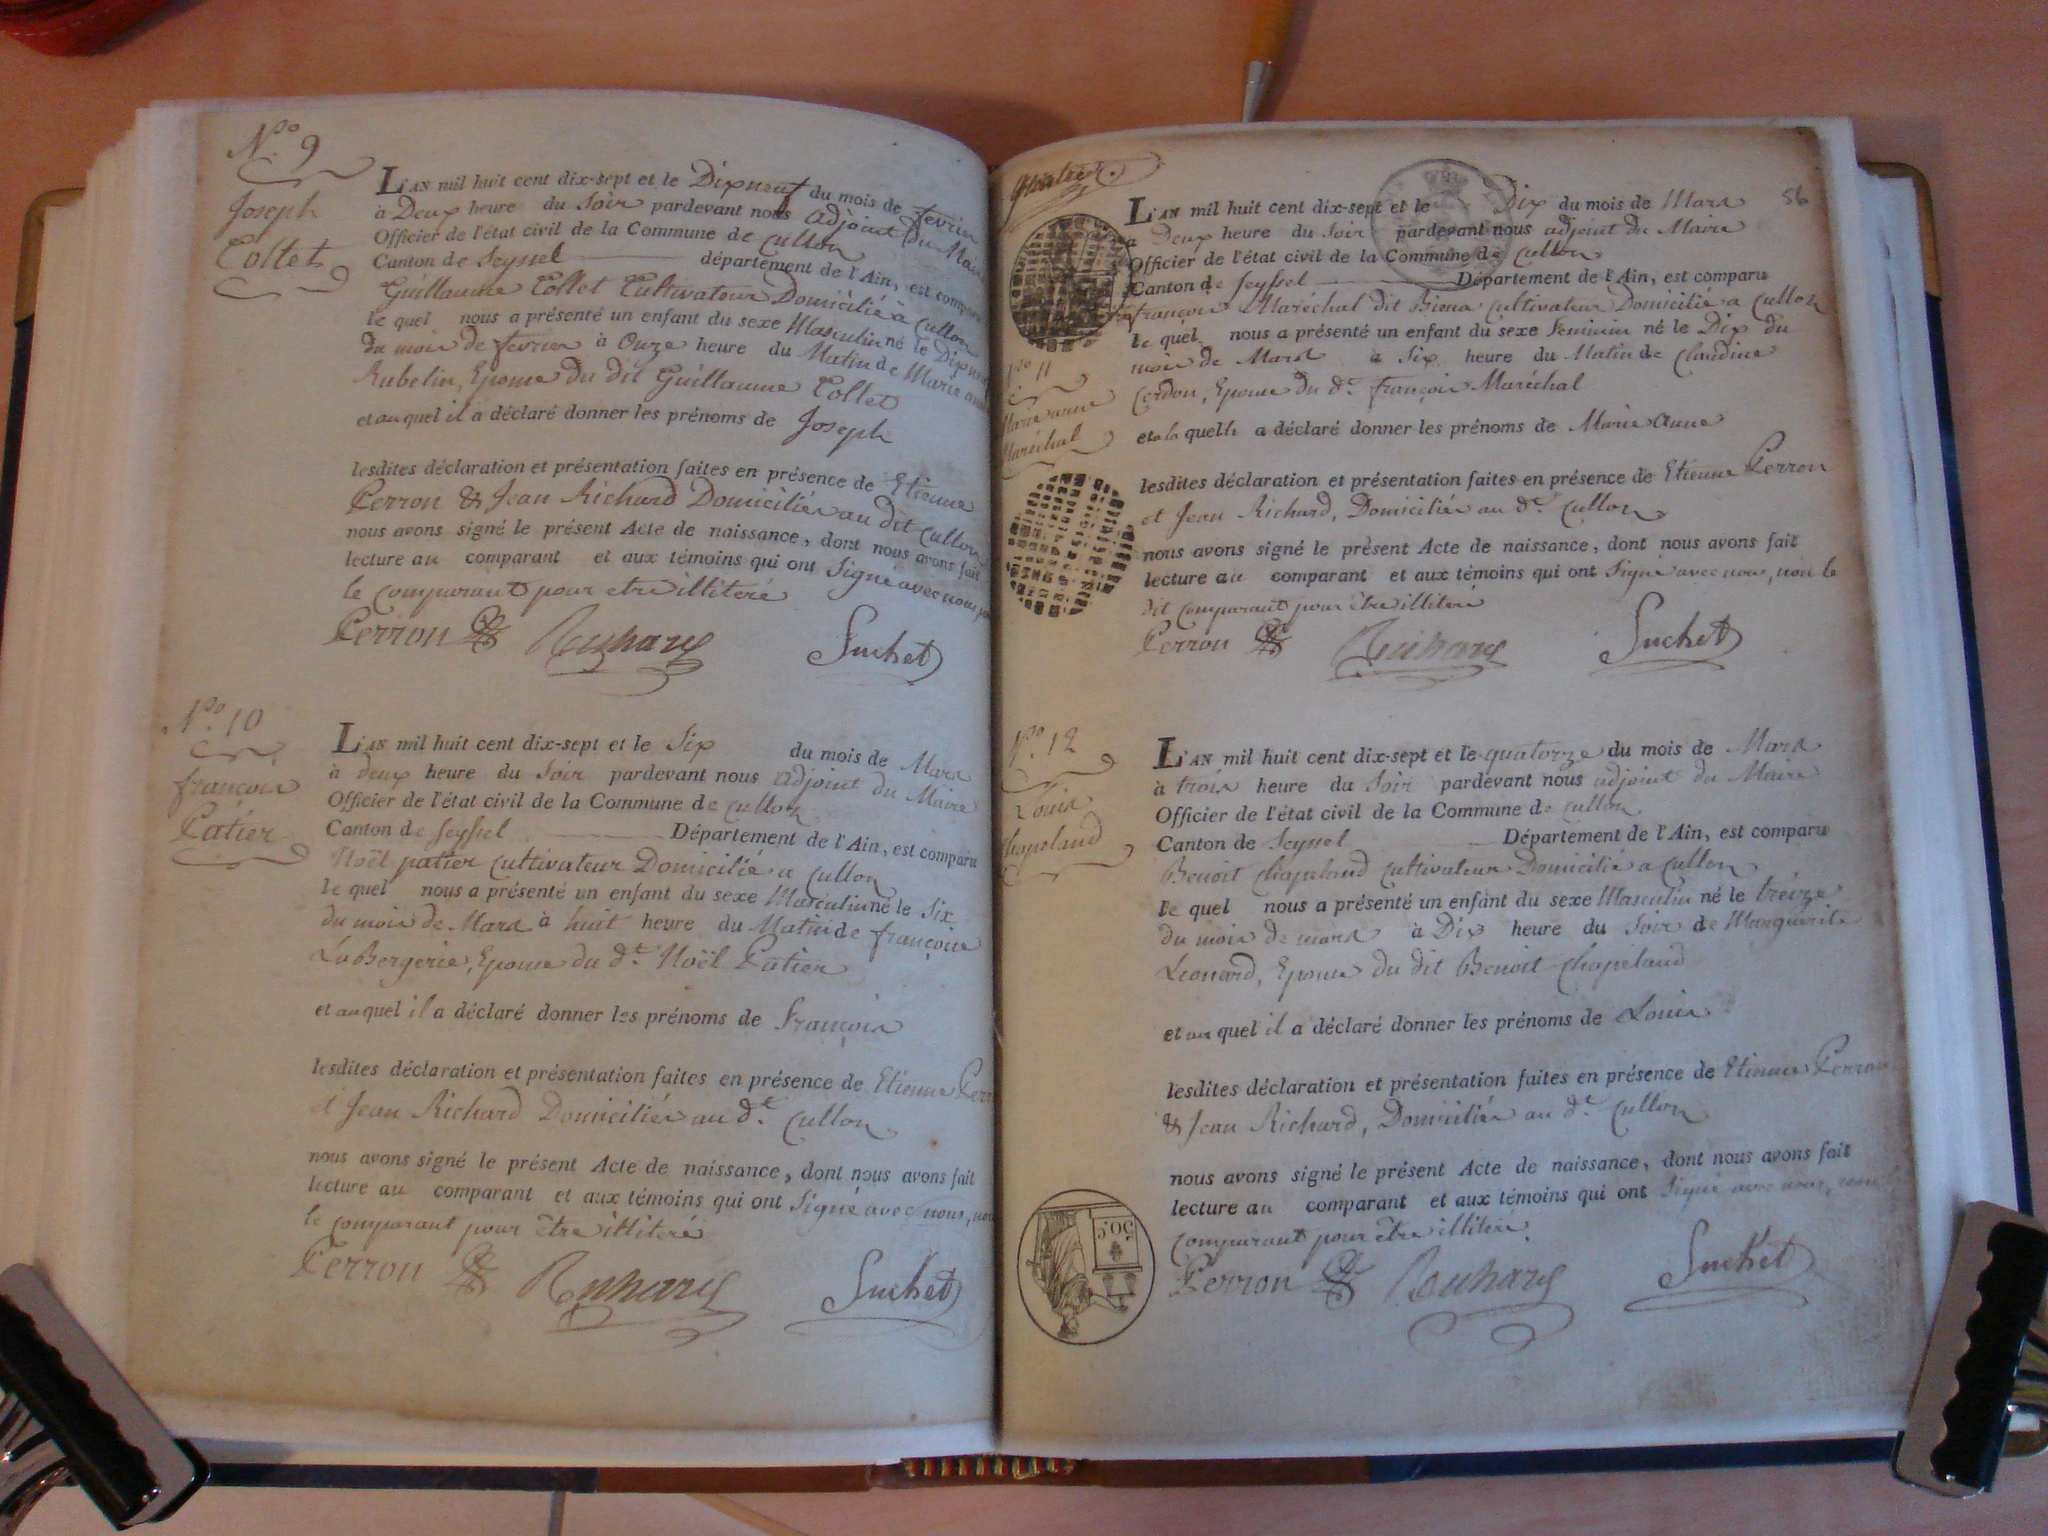 N.o 9
Joseph
Collet
L'AN mil huit cent dix-sept et le Dixneuf du mois de fevrier
à Deux heure du Soir pardevant nous adjoint du Maire
Officier de l'état civil de la Commune de Cullon
Canton de Seyssel département de l'Ain, est comparu
Guillaume Collet Cultivateur Domicilié à Cullon
le quel nous a présenté un enfant du sexe Masculin né le Dixneuf
du mois de fevrier à Onze heure du Matin de Marie anne
Rubelin, Epouse du dit Guillaume Collet
et auquel il a déclaré donner les prénoms de Joseph
lesdites déclaration et présentation faites en présence de Etienne
Perron & Jean Richard Domiciliés au dit Cullon
nous avons signé le présent Acte de naissance, dont nous avons fait
lecture au comparant et aux témoins qui ont Signé avec nous, non
le comparant pour etre illiteré
Perron Richard Suchet
N.o 10
françois
Patier
L'AN mil huit cent dix-sept et le Six du mois de Mars
à deux heure du Soir pardevant nous adjoint du Maire
Officier de l'état civil de la Commune de Cullon
Canton de Seyssel Département de l'Ain, est comparu
Noël patier Cultivateur Domicilié a Cullon
le quel nous a présenté un enfant du sexe Masculin né le Six
du mois de Mars à huit heure du Matin de françoise
LaBergerie, Epouse du d.t Noël Patier
et auquel il a déclaré donner les prénoms de François
lesdites déclaration et présentation faites en présence de Etienne Perron
et Jean Richard Domiciliés au d.t Cullon
nous avons signé le présent Acte de naissance, dont nous avons fait
lecture au comparant et aux témoins qui ont Signé avec nous, non
le comparant pour être illiteré
Perron Richard Suchet
56
N.o 11
Marie anne
Maréchal
L'AN mil huit cent dix-sept et le Dix du mois de Mars
a Deux heure du Soir pardevant nous adjoint du Maire
Officier de l'état civil de la Commune de Cullon
Canton de Seyssel Département de l'Ain, est comparu
françois Maréchal dit Biona Cultivateur Domicilié a Cullon
le quel nous a présenté un enfant du sexe Feminin né le Dix du
mois de Mars à Six heure du Matin de Claudine
Cerdon, Epouse du d.t françois Maréchal
et a la quelle a déclaré donner les prénoms de Marie Anne
lesdites déclaration et présentation faites en présence de Etienne Perron
et Jean Richard, Domiciliés au d.t Cullon
nous avons signé le présent Acte de naissance, dont nous avons fait
lecture au comparant et aux témoins qui ont Signé avec nous, non le
dit Comparant pour être illiteré
Perron Richard Suchet
N.o 12
Louis
Chapeland
L'AN mil huit cent dix-sept et le quatorze du mois de Mars
à trois heure du Soir pardevant nous adjoint du Maire
Officier de l'état civil de la Commune de Cullon
Canton de Seyssel Département de l'Ain, est comparu
Benoit Chapeland Cultivateur Domicilié a Cullon
le quel nous a présenté un enfant du sexe Masculin né le treize
du mois de mars à Dix heure du Soir de Marguerite
Leonard, Epouse du dit Benoit Chapeland
et au quel il a déclaré donner les prénoms de Louis
lesdites déclaration et présentation faites en présence de Etienne Perron
& Jean Richard, Domiciliés au d.t Cullon
nous avons signé le présent Acte de naissance, dont nous avons fait
lecture au comparant et aux témoins qui ont Signé avec nous, non
Comparant pour être illiteré.
Perron Richard Suchet
50C